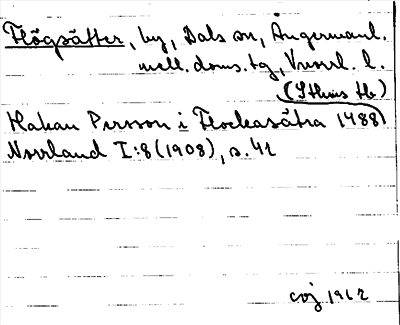 Flögsätter, by, Dals sn, Ångermanl.
mell. doms. tg, Vnorrl. l.
(Sthms tb.)
Hakan Persson i Flockasätra 1488)
Norrland I:8 (1908), s. 42
coj 1962